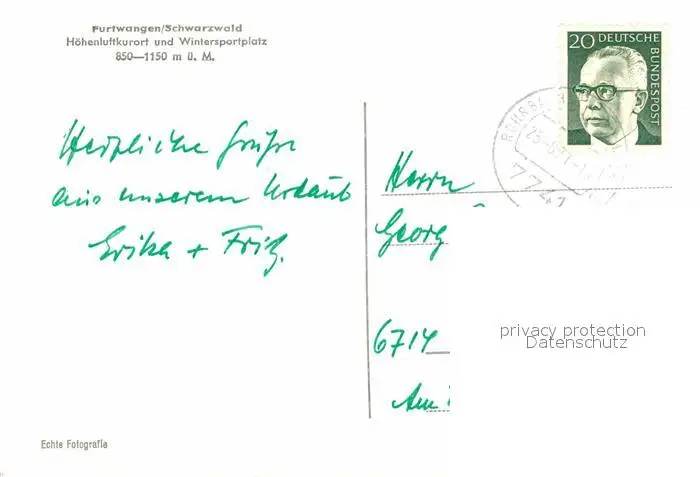 Furtwangen/Schwarzwald
Höhenluftkurort und Wintersportplatz
850—1150 m ü. M.
20 DEUTSCHE BUNDESPOST
7741
Herzliche Grüße
aus unserem Urlaub
Erika + Fritz.
Herrn
Georg
6714
Am
privacy protection
Datenschutz
Echte Fotografie